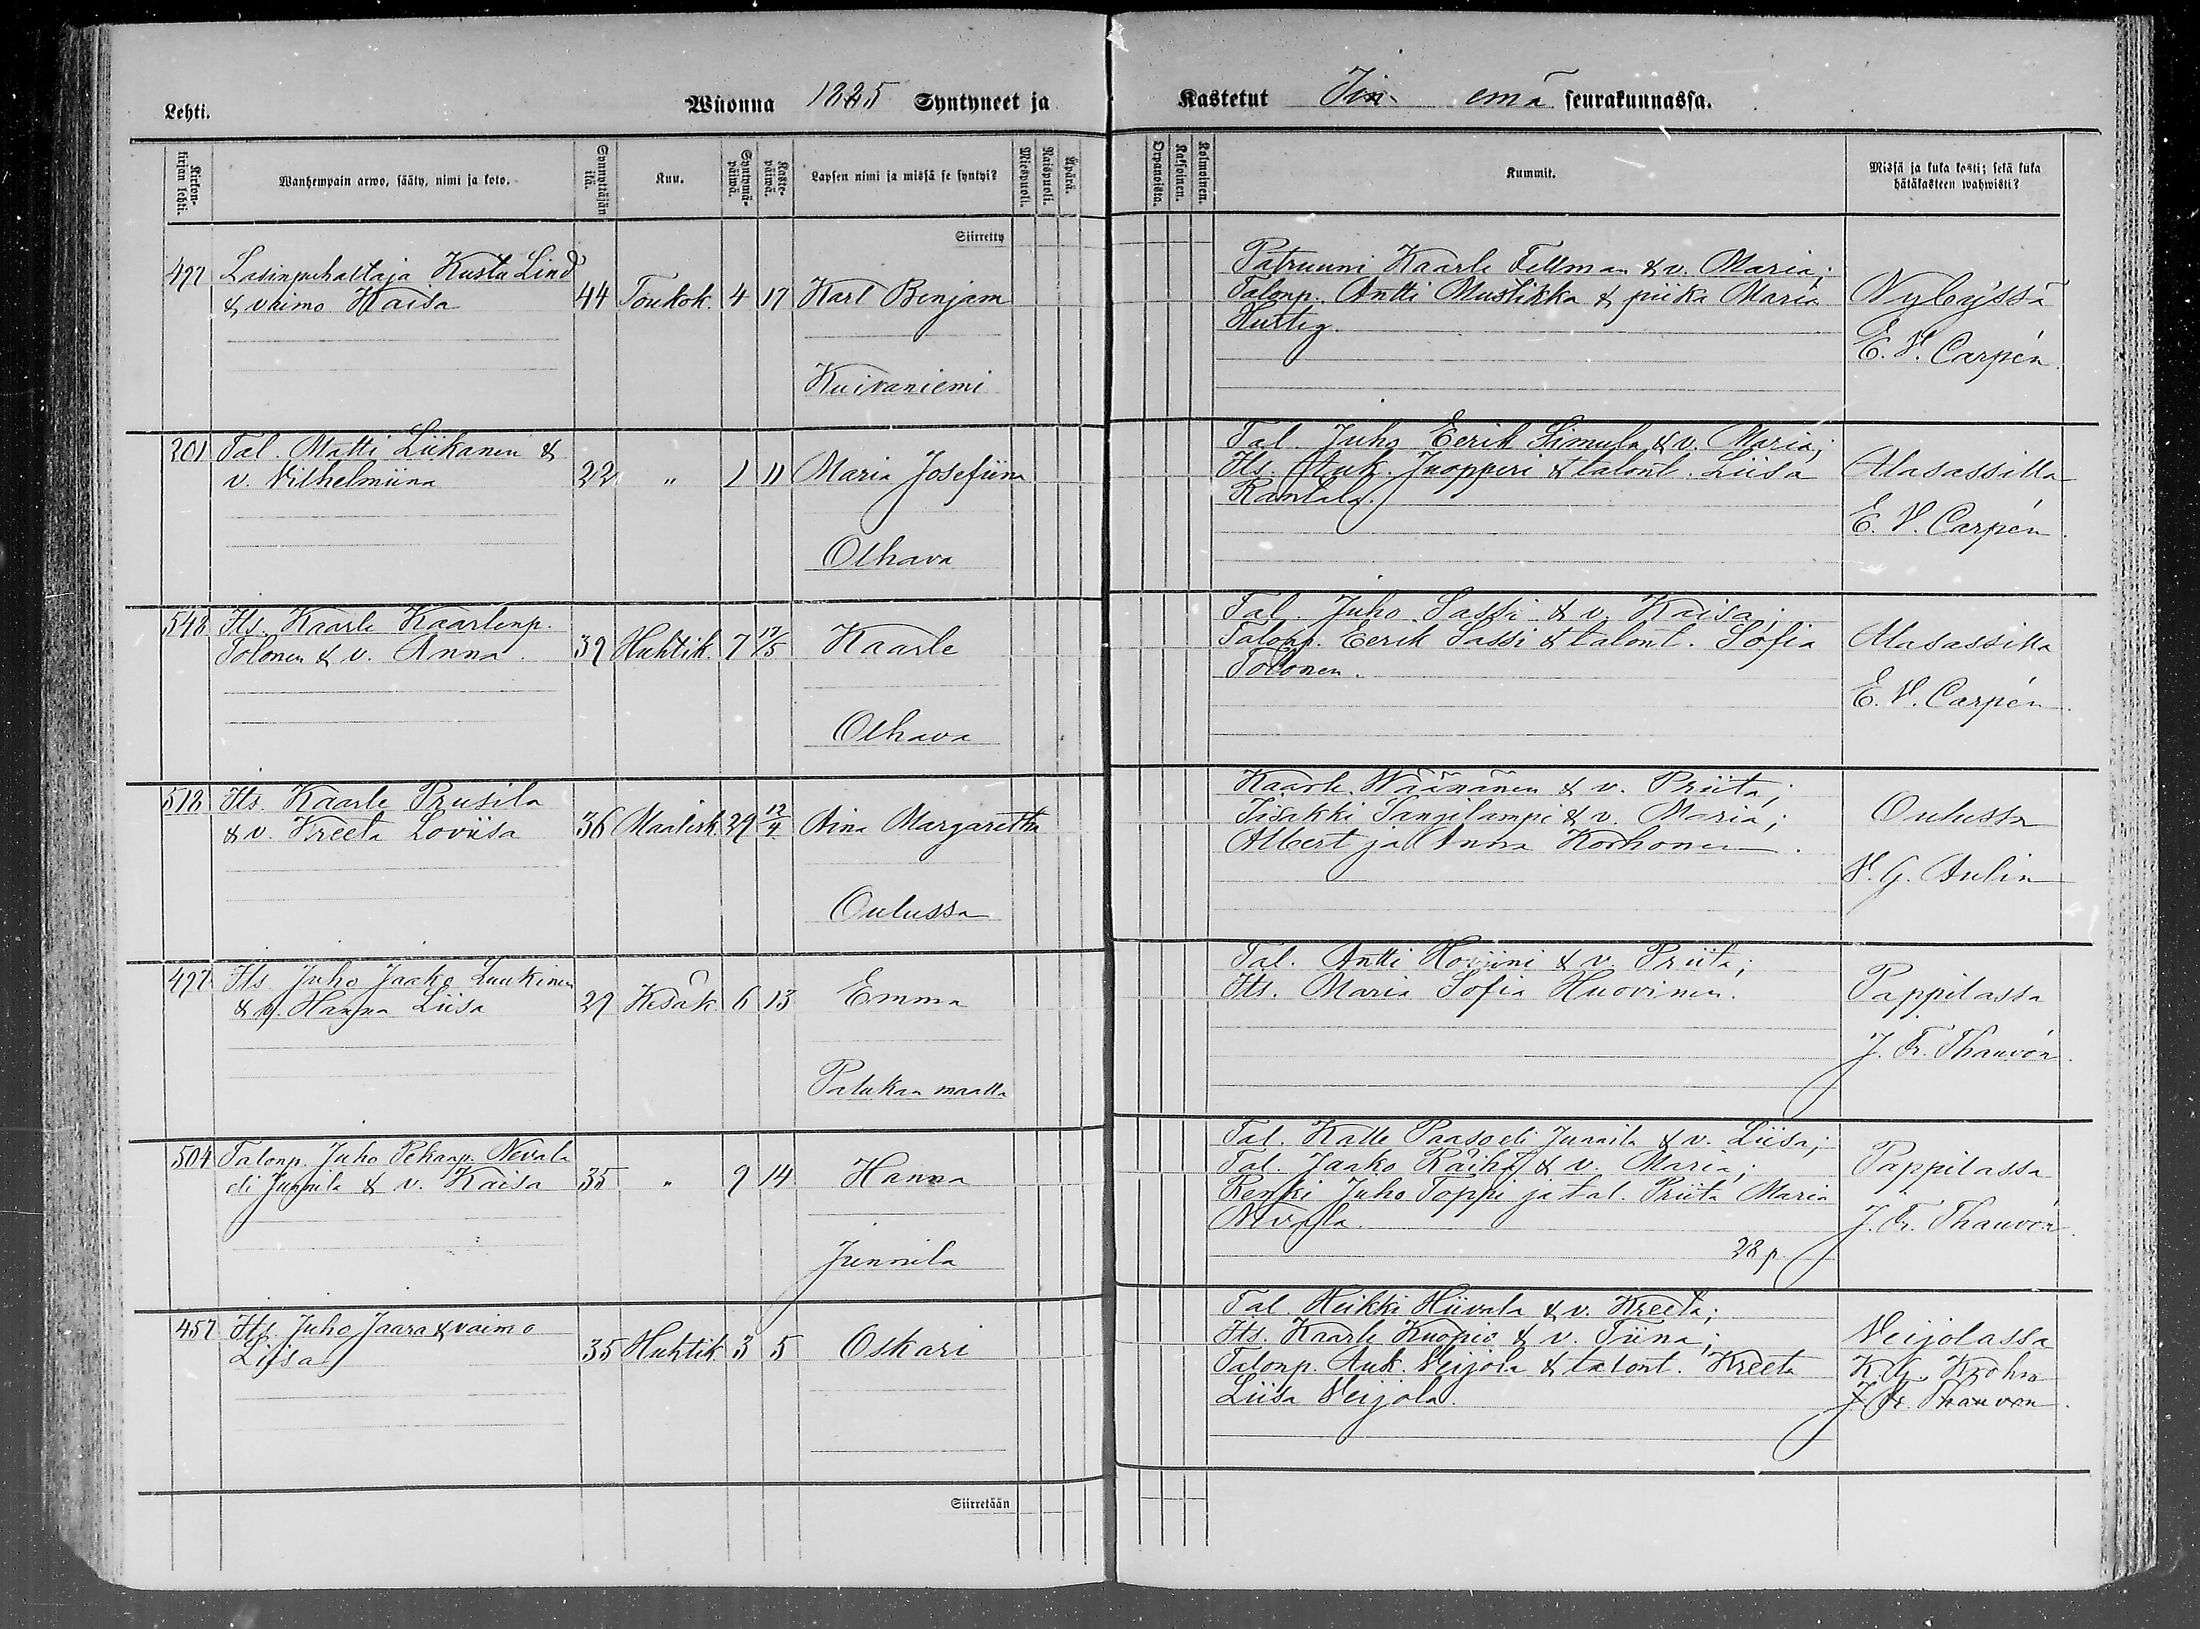 Lehti.
Wuonna 1885 Syntyneet ja
Kastetut Iin emä seurakunnassa.
Kirkonkirjan lehti.
Wanhempain arwo, sääty, nimi ja koto.
Synnyttäjän ikä.
Kuu.
Syntymäpäiwä.
Kastepäiwä.
Lapsen nimi ja missä se syntyi?
Miespuoli.
Naispuoli.
Äpärä.
Orpanoista.
Kaksoinen.
Kolmoinen.
Kummit.
Missä ja kuka kasti; sekä kuka
hätäkasteen wahwisti?
Siirretty
497 Lasinpuhaltaja Kustu Lind
& vaimo Kaisa 44 Toukok. 4 17 Karl Benjam
Kuivaniemi
Patruuni Kaarle Fellman & v. Maria;
Talonp. Antti Mustikka & piika Maria
Hurtig.
Nybyssä
E. V. Carpén.
201 Tal. Matti Liikanen &
v. Vilhelmiina 22 " 1 11 Maria Josefiina
Olhava
Tal. Juho Eerik Simula & v. Maria;
Its. Auk. Jnopperi & talont. Liisa
Rantala.
Alasassilla
E. V. Carpén.
548 Its. Kaarle Kaarlenp.
Tolonen & v. Anna. 39 Huhtik. 7 17/5 Kaarle
Olhava
Tal. Juho Sassi & v. Kaisa;
Talonp. Eerik Sassi & talont. Sofia
Tolonen.
Alasassilla
E. V. Carpén.
518 Its. Kaarle Prusila
& v. Kreeta Loviisa 36 Maalisk. 29 12/4 Aina Margaretha
Oulussa
Kaarle Väänänen & v. Priita;
Iisakki Sangilampi & v. Maria;
Albert ja Anna Korhonen.
Oulussa
V. G. Aulin
497 Its. Juho Jaako Luukinen
& v. Hanna Liisa 29 Kesäk. 6 13 Emma
Palukan maalla
Tal. Antti Hoviini & v. Priita;
Its. Maria Sofia Huovinen.
Pappilassa
J. Fr. Thauvón.
504 Talonp. Juho Pekanp. Nevala
eli Junnila & v. Kaisa 35 " 9 14 Hanna
Junnila
Tal. Kalle Paaso eli Junnila & v. Liisa;
Tal. Jaako Räihä & v. Maria;
Renki Juho Toppi ja tal. Priita Maria
Nevala.
28 p.
Pappilassa
J. Fr. Thauvón.
457 Its. Juho Jaara & vaimo
Liisa 35 Huhtik. 3 5 Oskari
Tal. Heikki Hiivala & v. Kreeta;
Its. Kaarle Kuopio & v. Tiina;
Talonp. Auk. Veijola & talont. Kreeta
Liisa Veijola.
Veijolassa
K. G. Krohn
J. Fr. Thauvon.
Siirretään